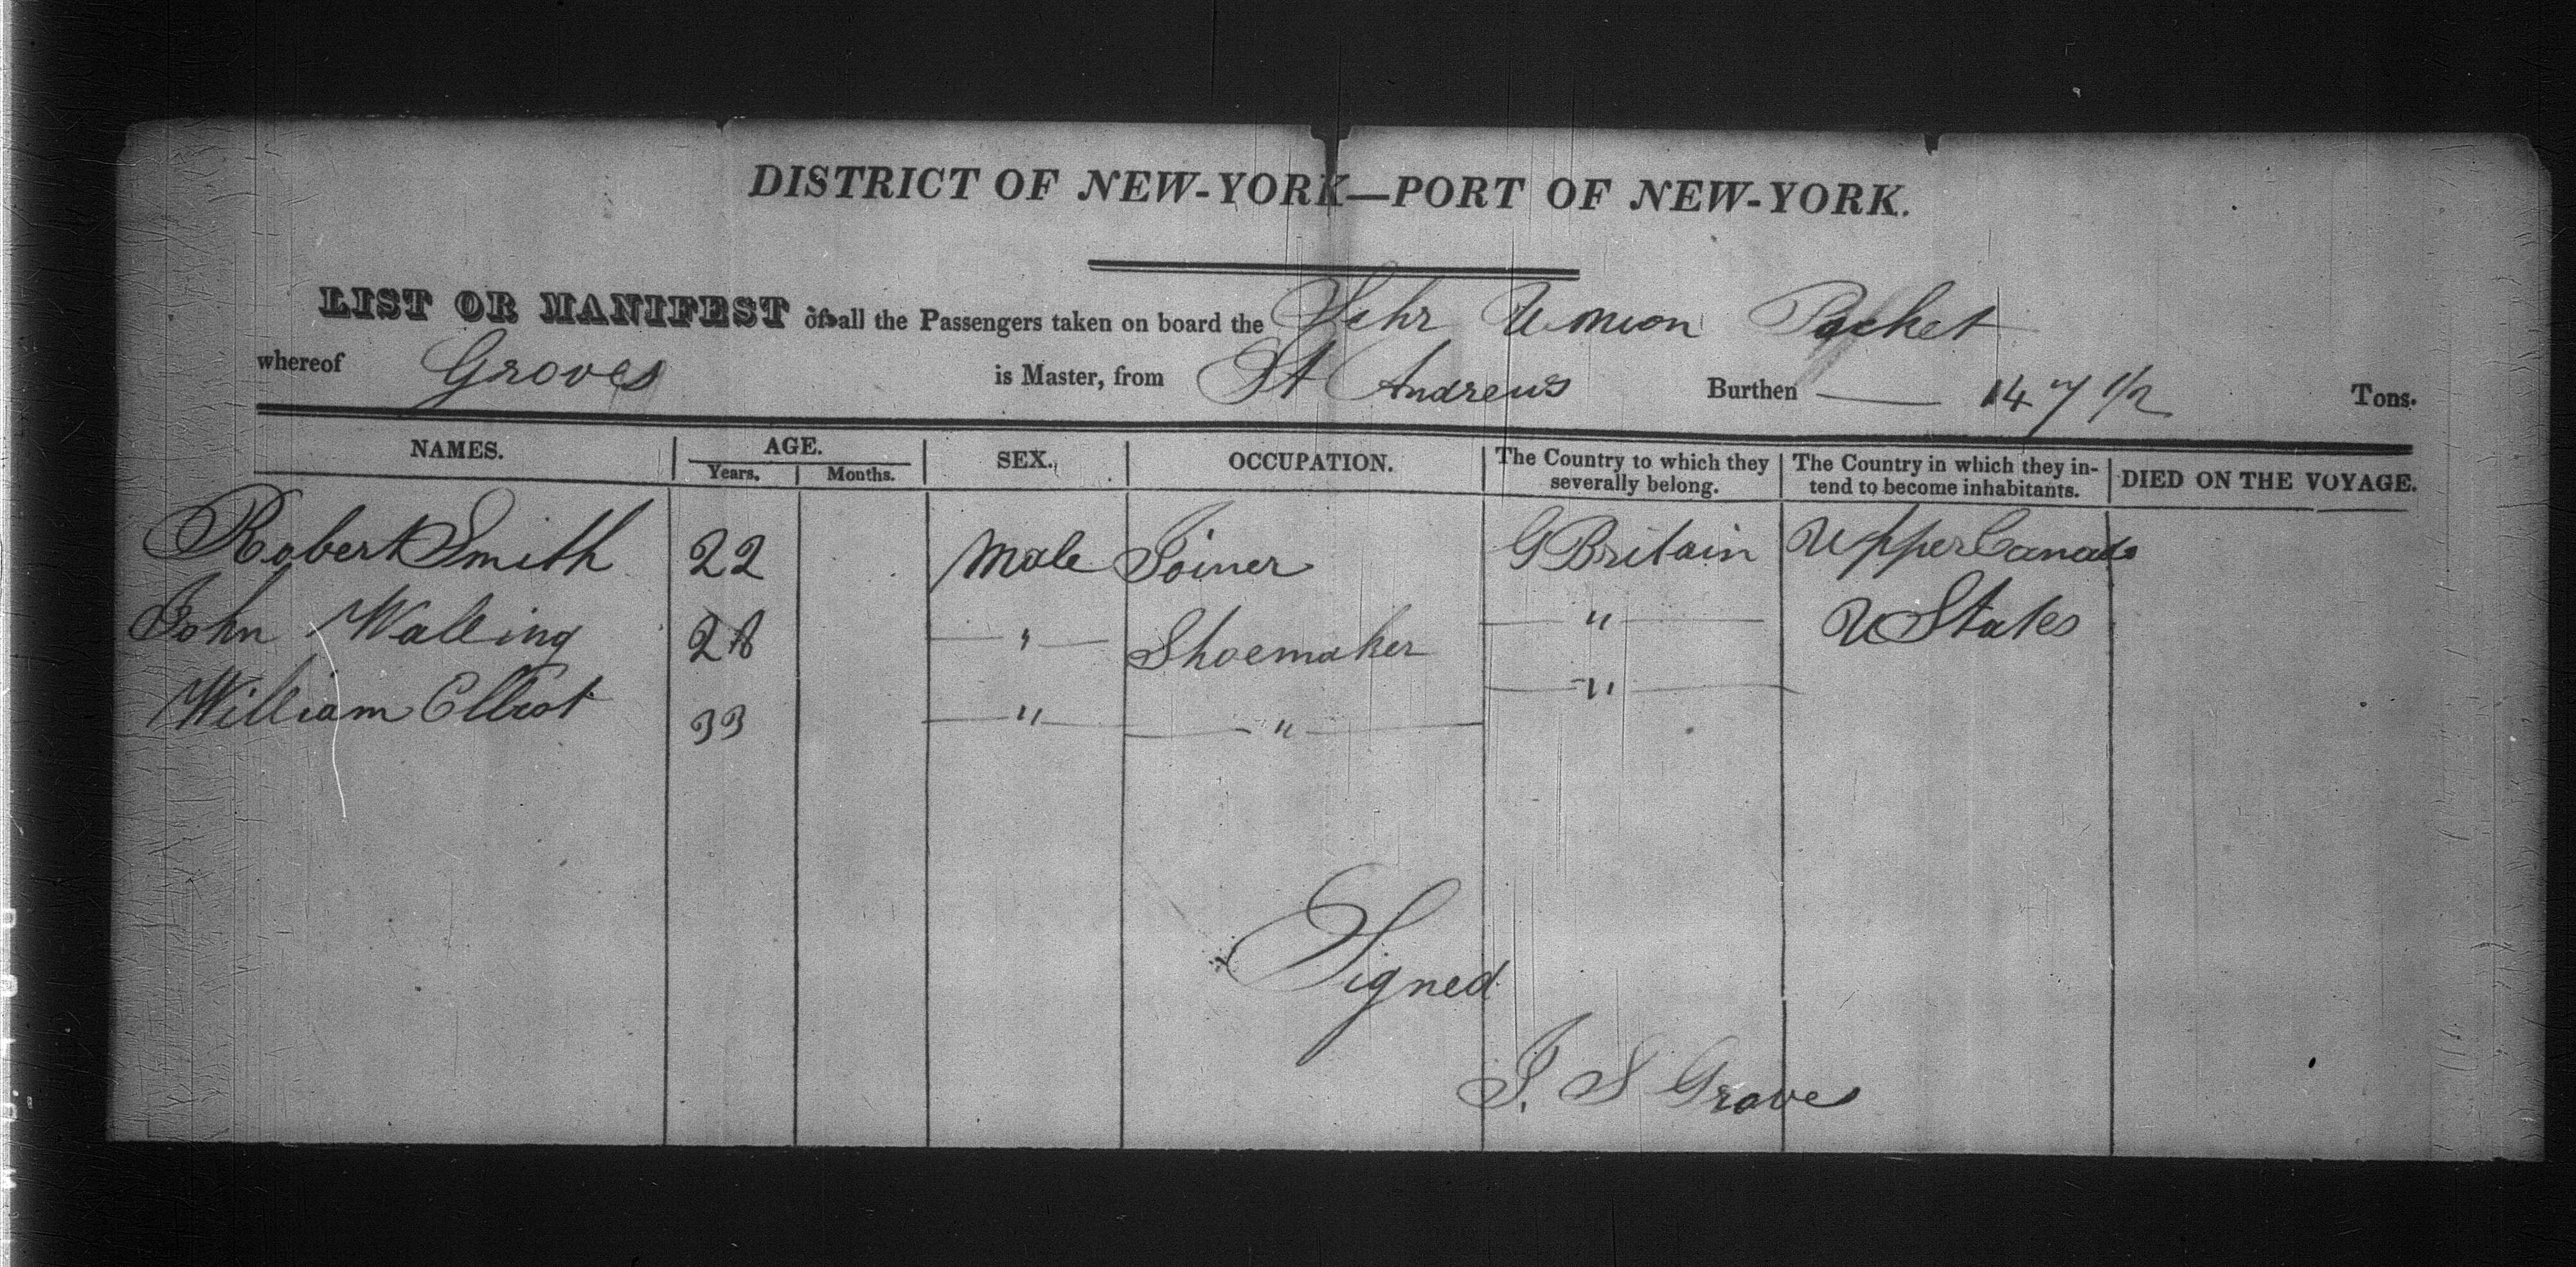 DISTRICT OF NEW-YORK—PORT OF NEW-YORK.
LIST OR MANIFEST of all the Passengers taken on board the Schr Union Packet
whereof Groves is Master, from St Andrews Burthen — 147 1/2 Tons.
NAMES. AGE. SEX. OCCUPATION. The Country to which they severally belong. The Country in which they in-tend to become inhabitants. DIED ON THE VOYAGE.
Years. Months.
Robert Smith 22 Male Joiner G Britain Upper Canada
John Walling 28 " Shoemaker " U States
William Elliot 33 " " "
Signed
J. S Groves